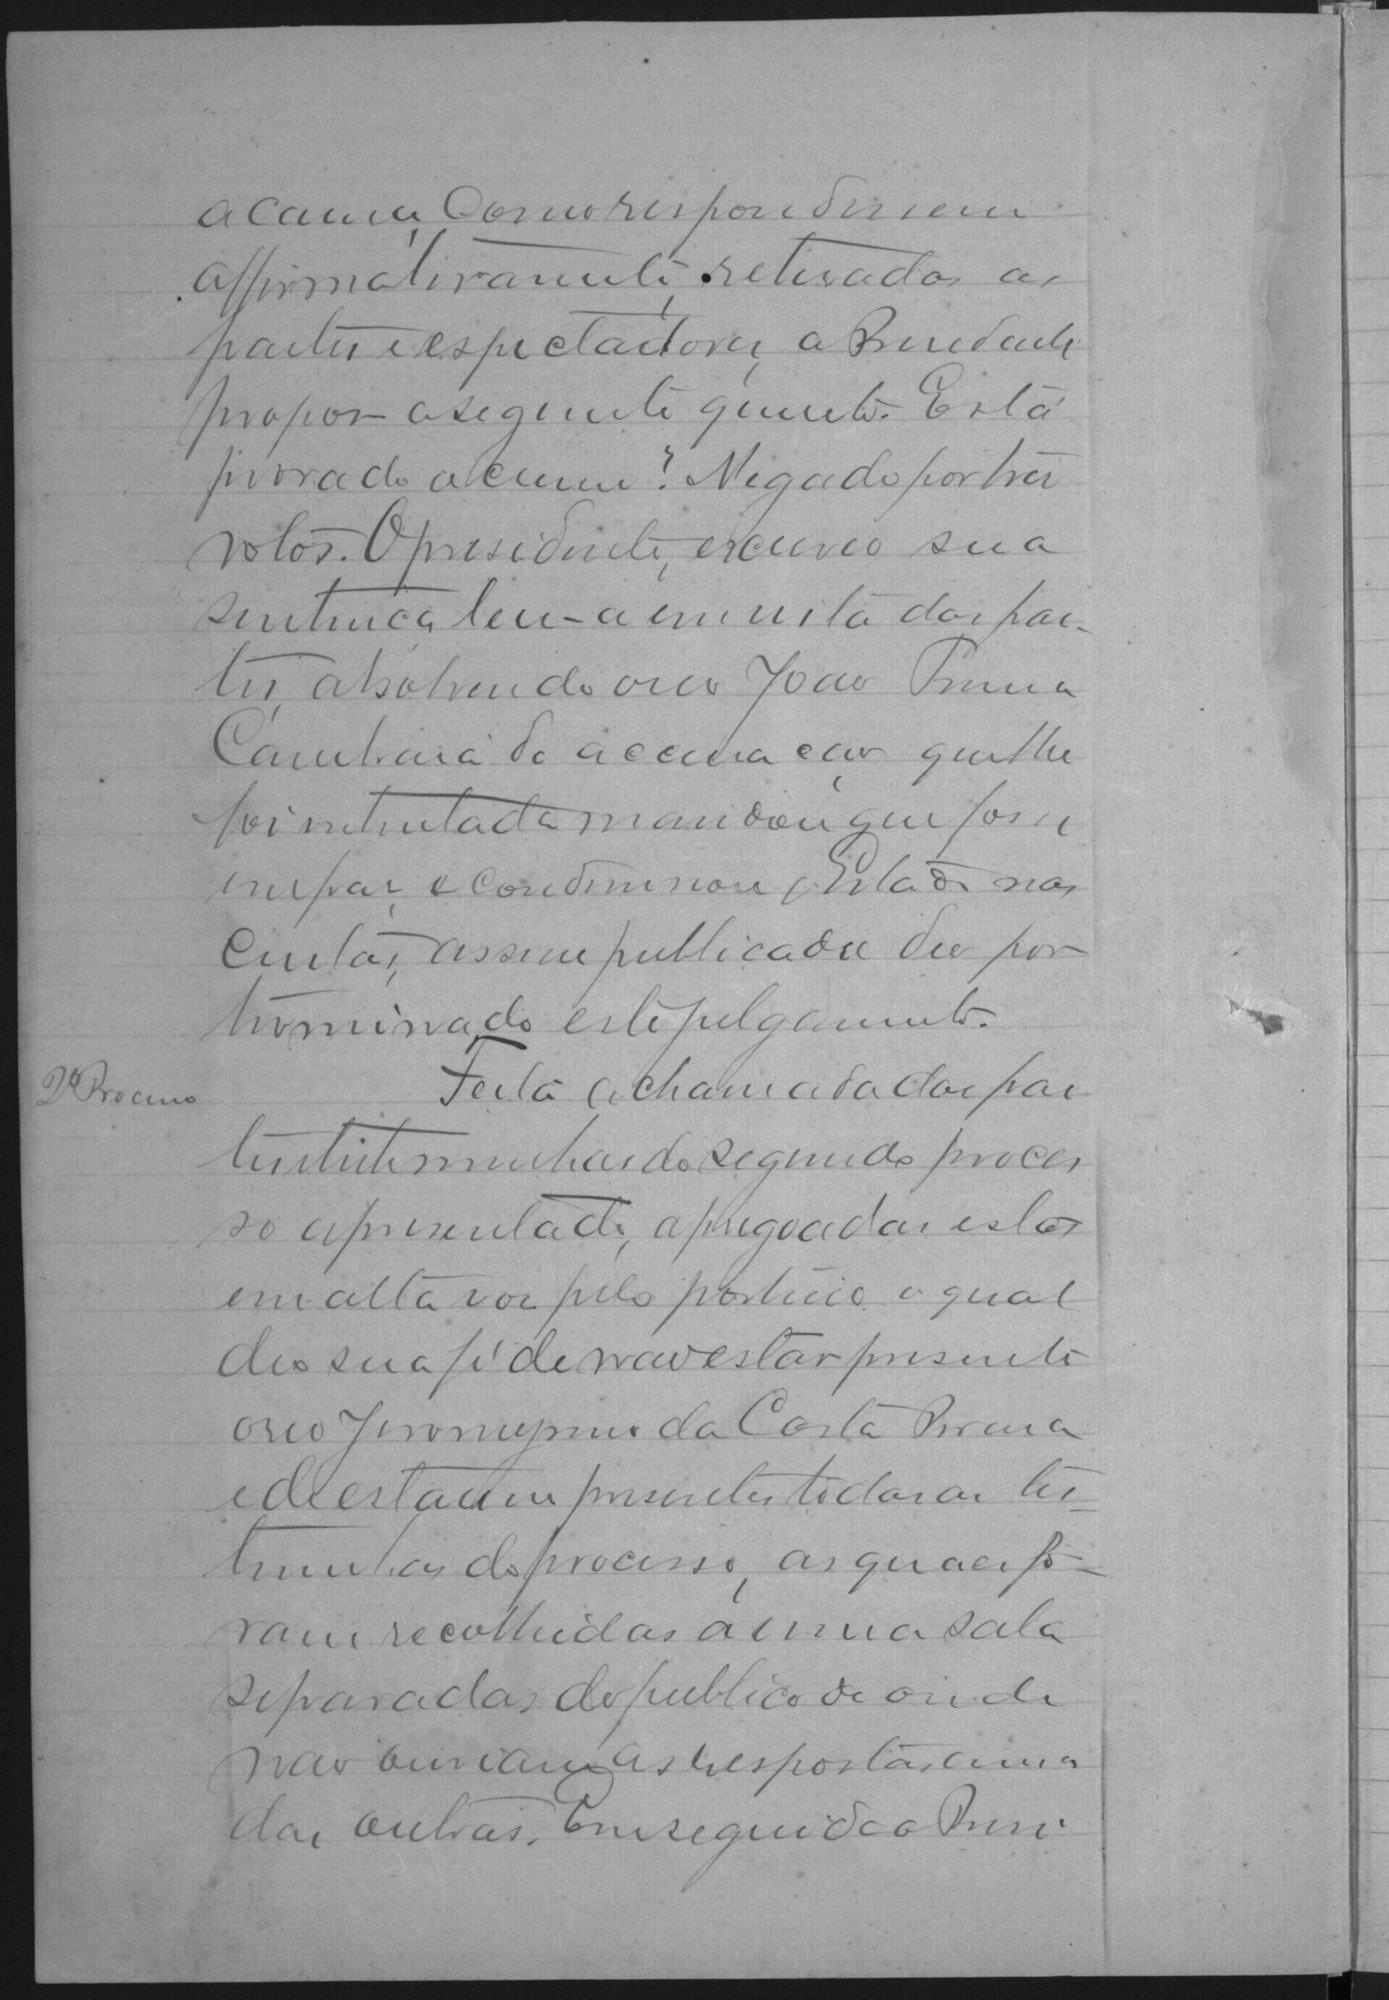 a causa, Como respondessem
affirmativamente, retirados as
partes e espectadores, o Presidente
propor o seguinte quesito. Está
provado o crime? Negado por tres
votos. O presidente, escreveo sua
sentença, leu-a em vista das par-
tes, absolvendo o reo João
da accusação que lhe
foi intentada mandou que fosse
em paz, e condemnou o Estado nas
custas, assim publicada deo por
terminado este julgamento.
2º Processo
Feita a chamada das par
tes testemunhas do segundo proces
so apresentado, apregoadas estas
em alta voz pelo porteiro o qual
deo sua fé de nao estar presente
o reo Jeronymo da Costa
e de estarem presentes todas as tes-
temunhas do processo, as quaes fo-
ram recolhidas á uma sala
separadas do publico de onde
nao ouviam as respostas umas
das outras. Em seguida o Presi